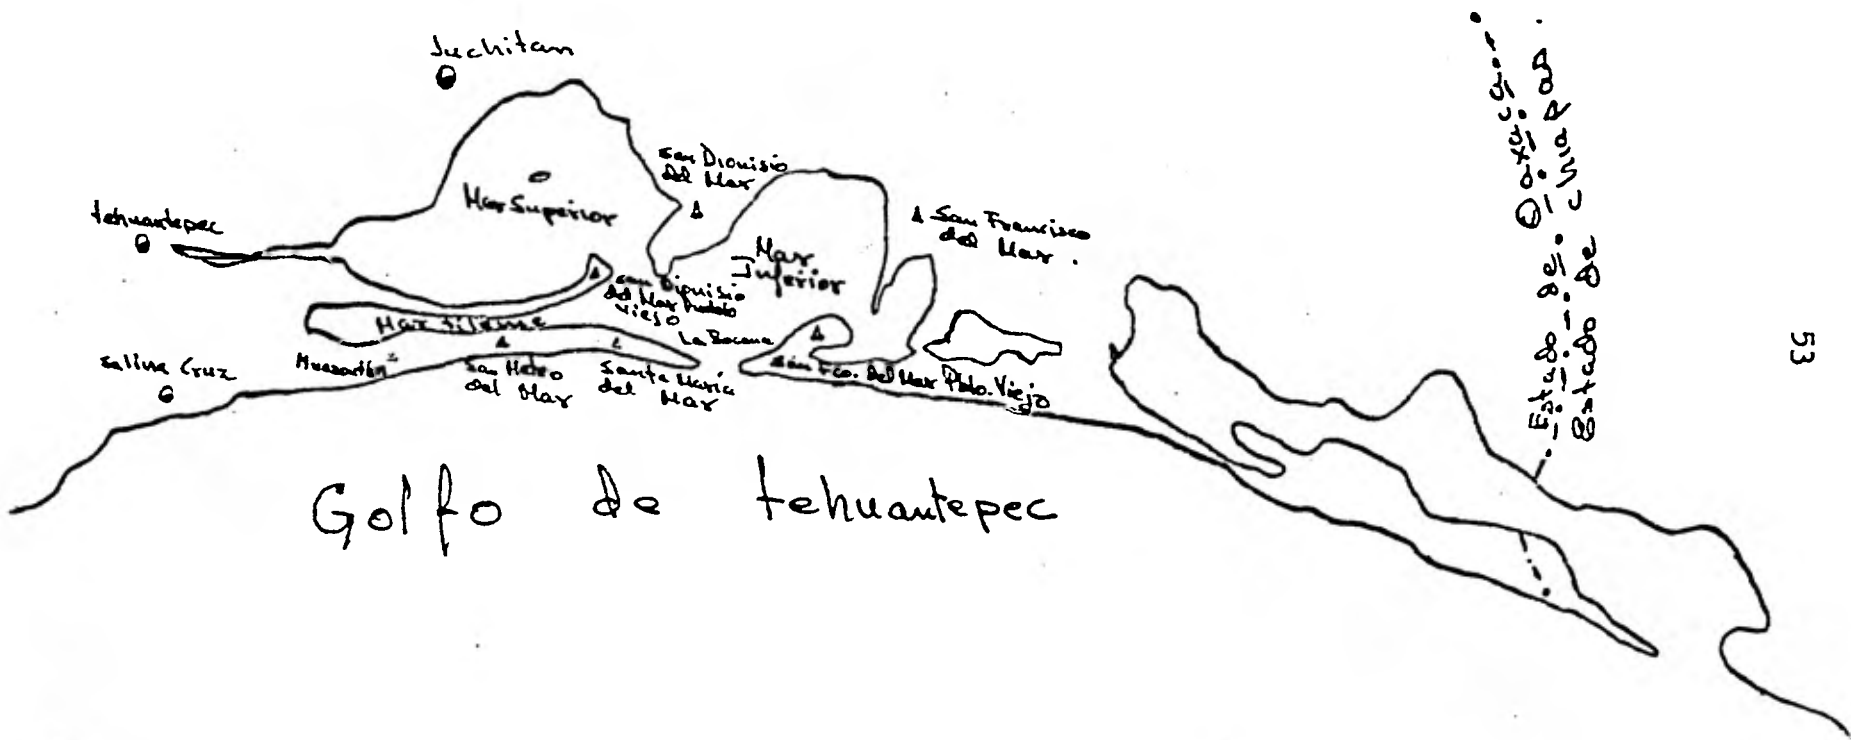 Juchitan
San Dionisio
del Mar
Mar Superior
tehuantepec
San Francisco
del Mar.
Mar
Inferior
San Dionisio
del Mar Pueblo
Viejo
Mar tileme
La Bocana
Salina Cruz
Huazantlán
San Mateo
del Mar
Santa María
del Mar
San Fco. del Mar Pblo. Viejo
Golfo de tehuantepec
Estado de Oaxaca.
Estado de Chiapas.
53